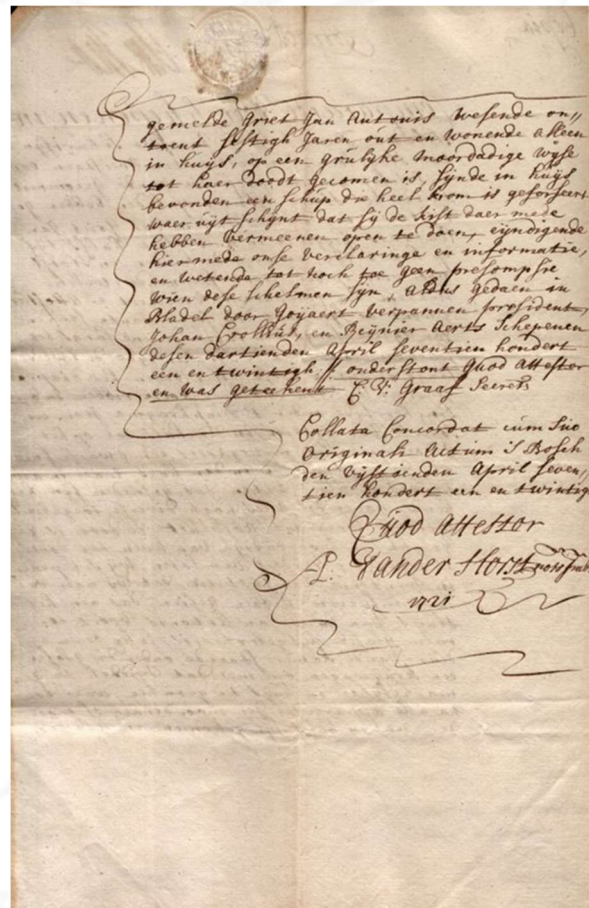 gemelde Griet Jan Antonis wesende on//
trent sestigh Jaren out en wonende alleen
in huijs, op een grúlijke moordadige wijse
tot haer doodt gecomen is, sijnde in huijs
bevonden een schúp die heel krom is geforseert
waer úijt schijnt dat sij de kist daer mede
hebben vermeenen open te doen, eijndigende
hiermede onse verclaringe en informatie,
en wetende tot noch toe geen presompsie
wien dese schelmen sijn, aldus gedaen in
Bladel door Goijaert verspannen president,
Johan, en Reijnier Aerts Schepenen
desen dartienden April seventien hondert
een en twintigh // onderstont Quod Attestor
en was getekent Graaf Secrets
Collata Concordat cúm súo
originali Actúm 's Bosch
den vijftienden April seven,
tien hondert een en twintig
Qúod Attestor
Vander Horst
1721